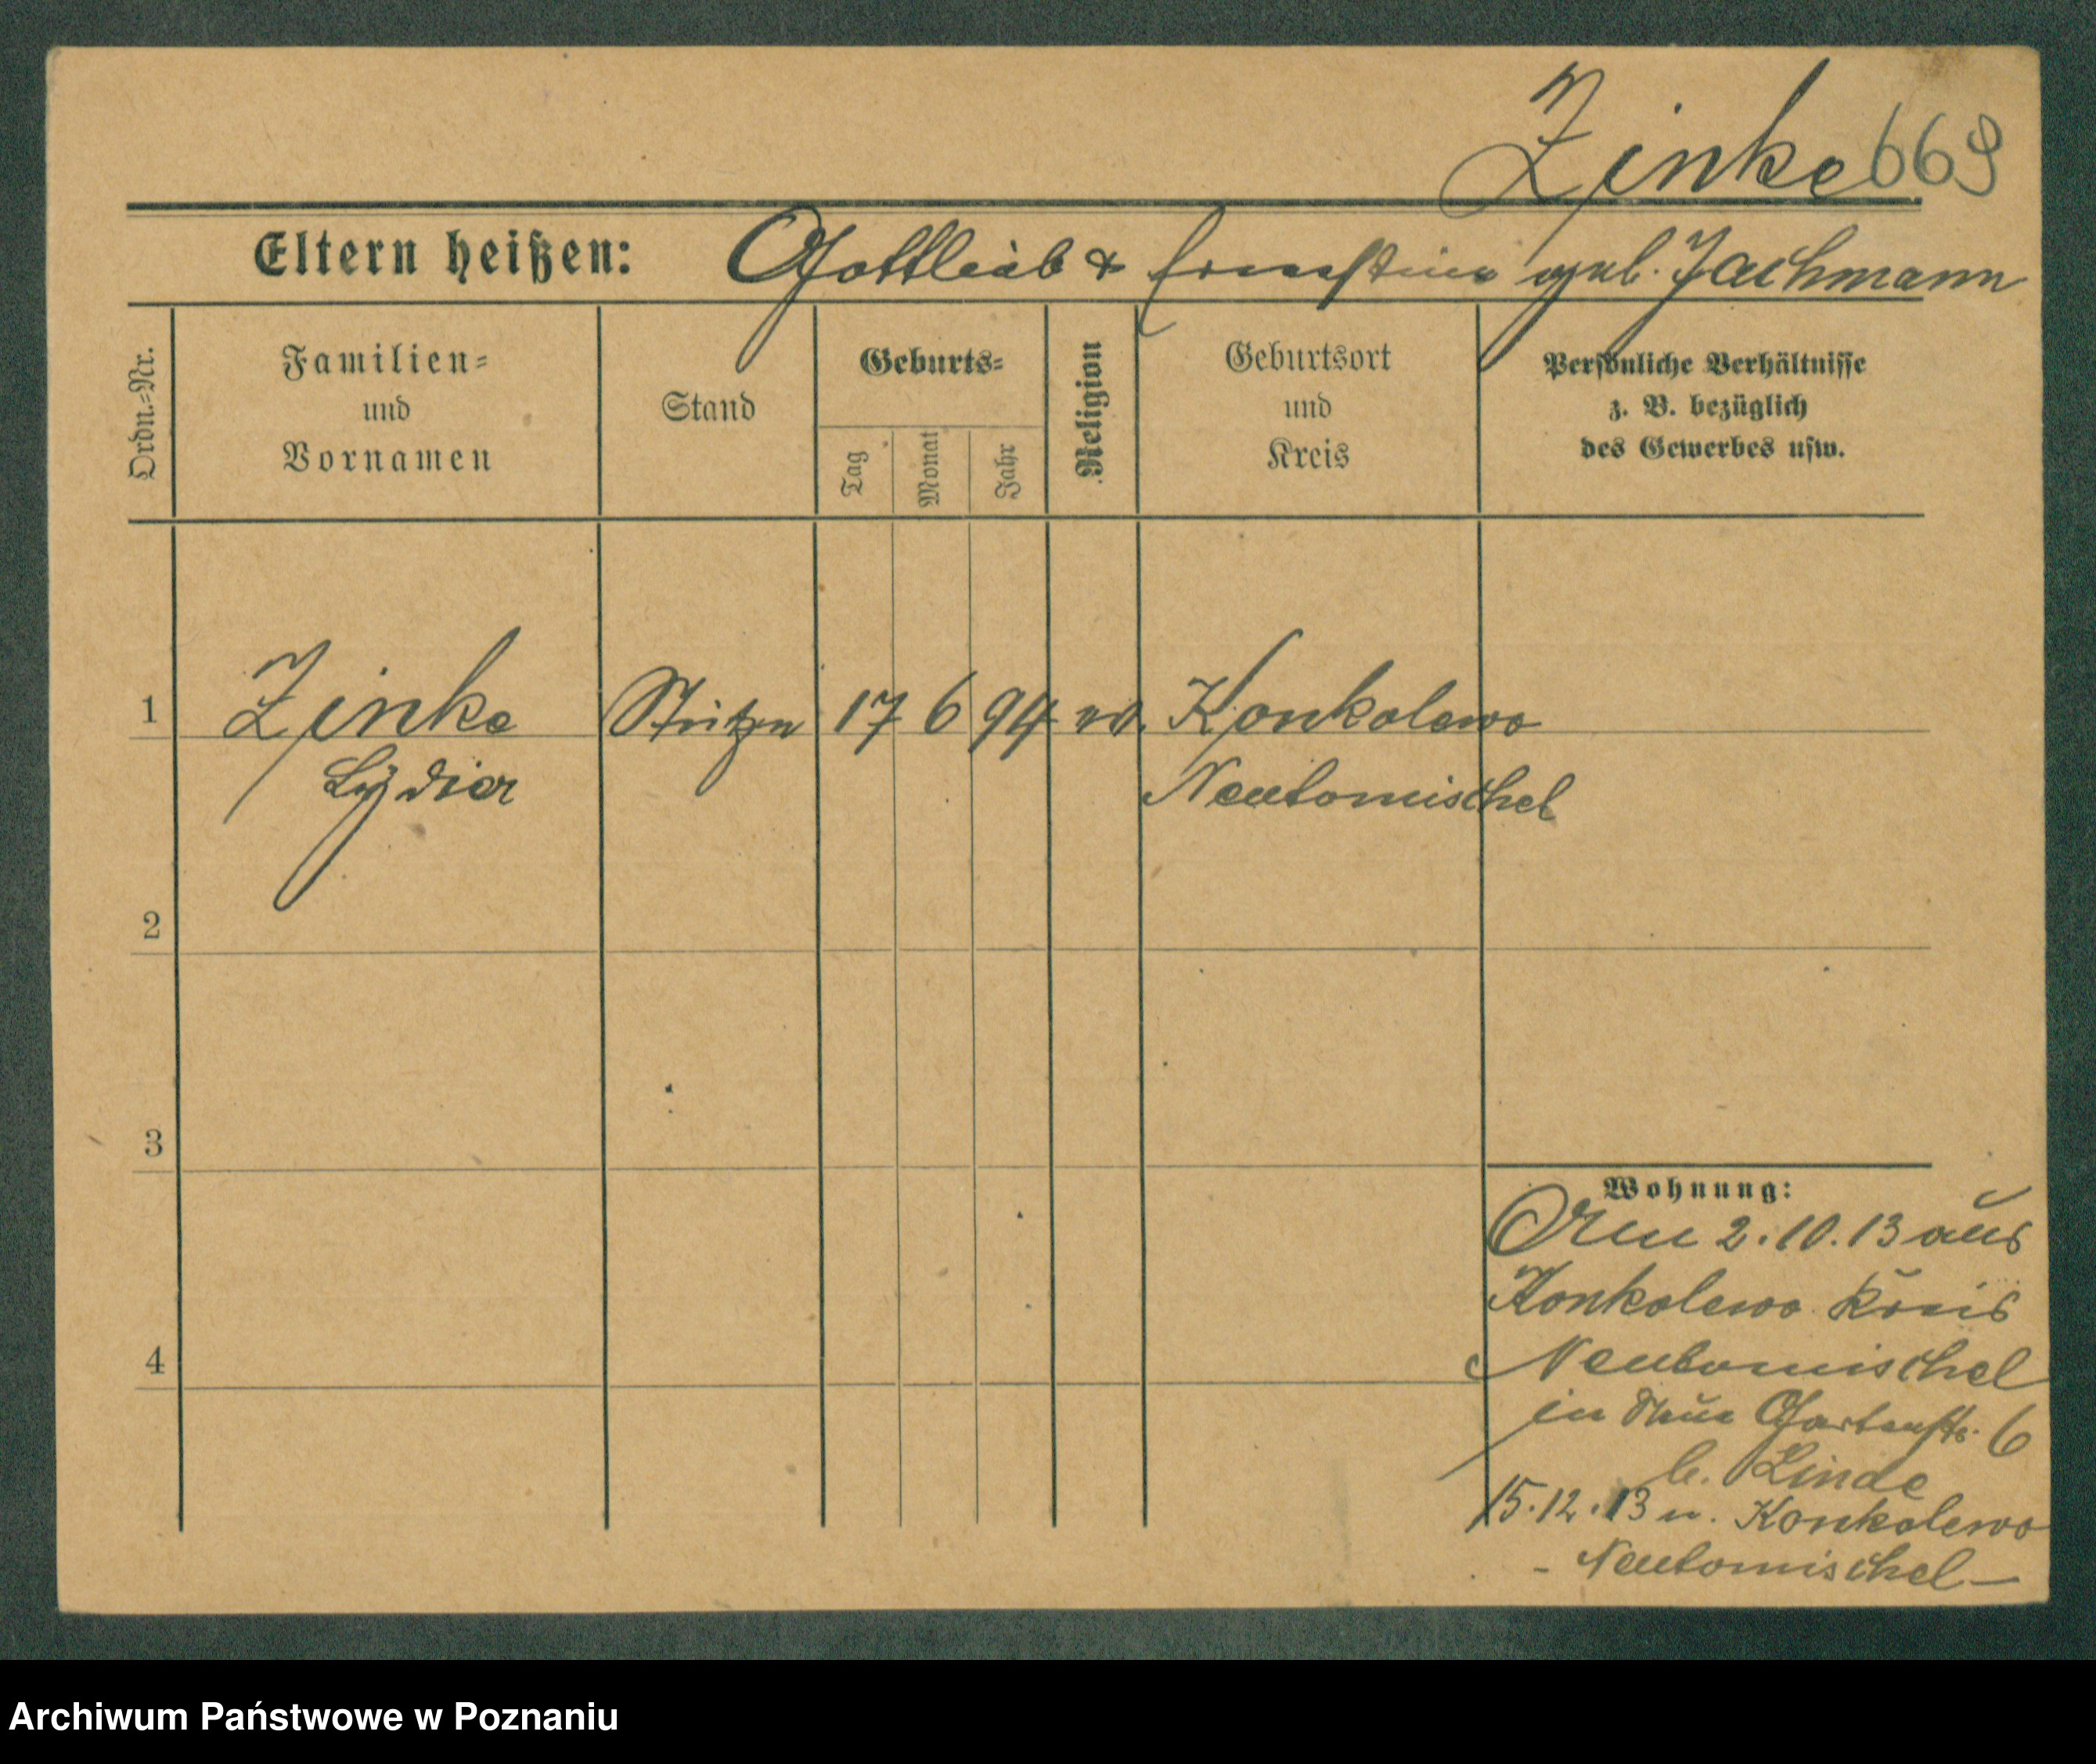 Zinke 669
Eltern heißen: Gottlieb & Ernestine geb. Jachmann
Ordn.-Nr.
Familien-
und
Vornamen
Stand
Geburts-
Tag
Monat
Jahr
Religion
Geburtsort
und
Kreis
Persönliche Verhältnisse
z. B. bezüglich
des Gewerbes usw.
1 Zinke Stütze 17 6 94 ev. Konkolewo
Lydia Neutomischel
2
3
4
Wohnung:
2.10.13 aus
Konkolewo Kreis
Neutomischel
in Gartenstr. 6
b. Linde
15.12.13 n. Konkolewo
- Neutomischel -
Archiwum Państwowe w Poznaniu